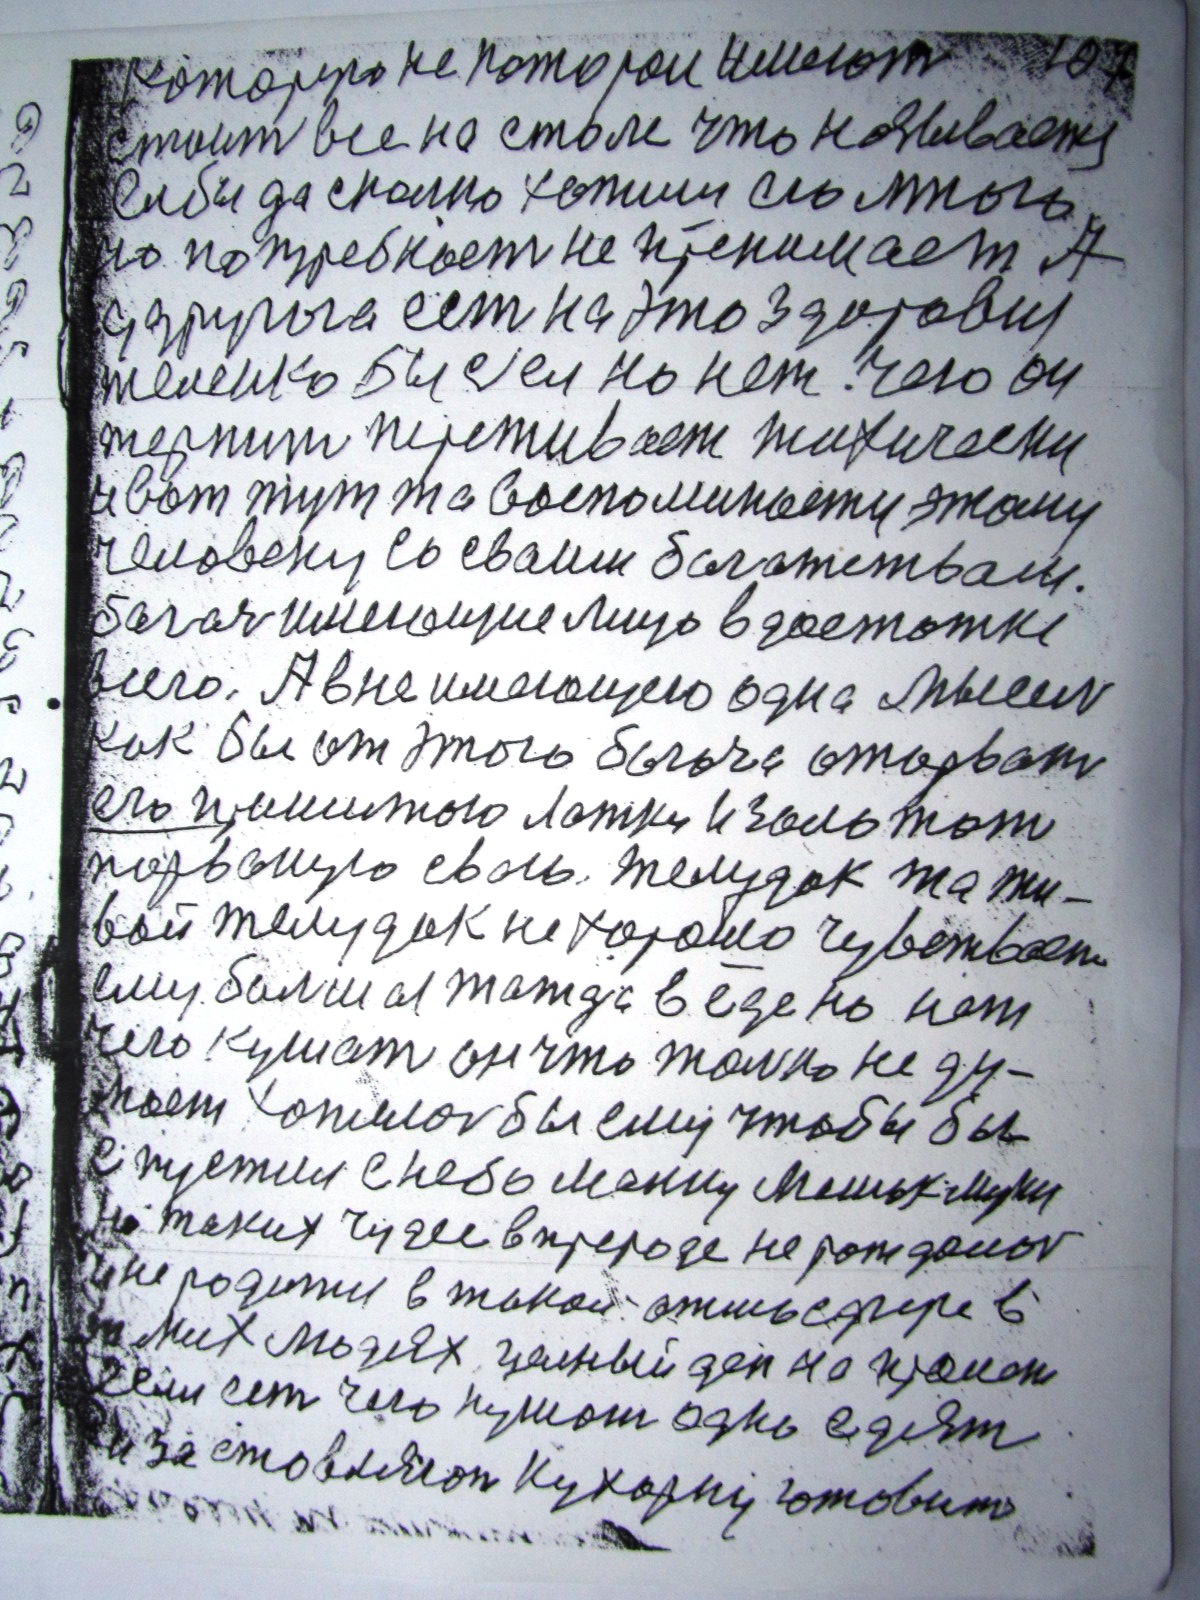 которго не котораи имеют 107
стоит все на столе что называется
Ели бы да сколко хотили сло много
но потребност не пренимает А
у друрога ест на это здоровия
теленка бы сел но нет. чего он
терпит переживает тихически
и вот тут та воспоминается этому
человеку со сваим багатством.
богач имеющие лицо в достатке
всего. А в не имеющего одна мысел
как бы от этого богача оторват
его прижитого латку и золотом
порваную свою. Желудок та жи-
вой желудок не хорошо чувствает
ему. болшая жажда в ёде но нет
чего кушат он что толко не ду-
мает хотилос бы ему чтобы бы
спустил с неба манну мешок муки
но таких чудес в прероде не рождалос
и не родится в такой атмосфере в
таких людях целный ден на пролет
если ест чего кушат одно едят
и заставляют кухарку готовит